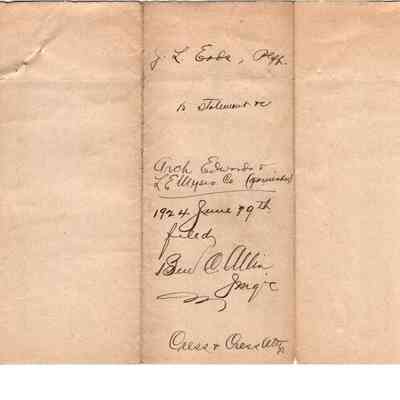 J. L. Eads, Plff.
to Statement vc
Arch Edwards &
L E Myers Co (garnishee)
1924 June 19th
filed
Ben C. Allin
Jmgc
Cress & Cress Atty